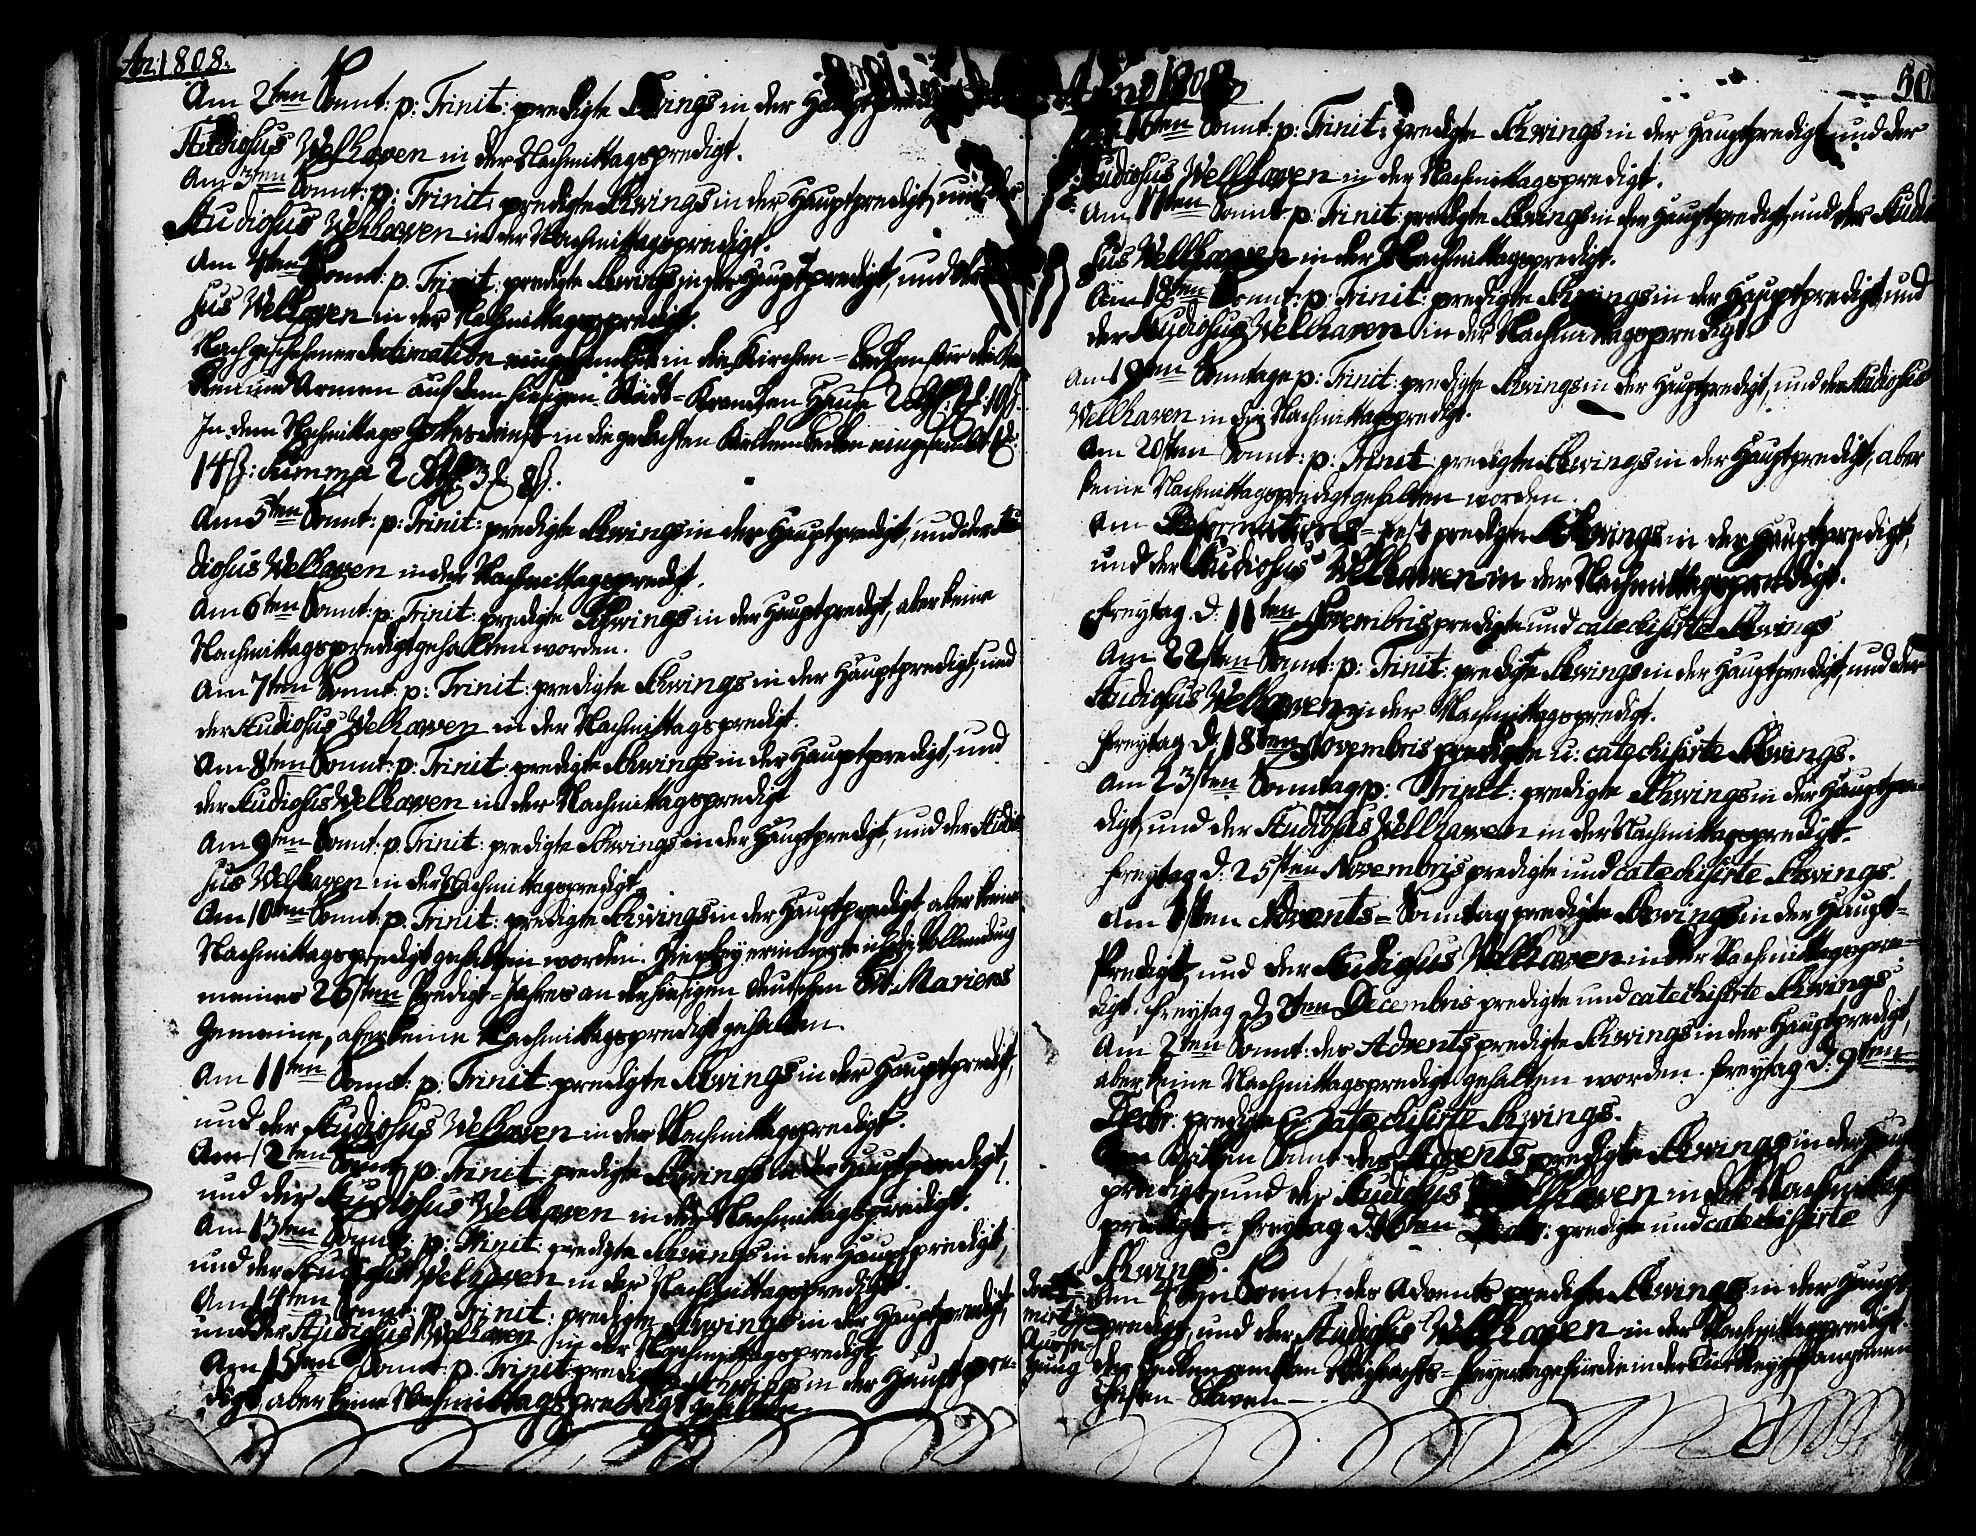 An: 1808.
Am 2ten Sonnt: p: Trinit: predigte Schwings in der Hauptpredigt
Studiosus Welhaven in der Nachmittagspredigt.
Am 3ten Sonnt: p: Trinit: predigte Schwings in der Hauptpredigt, und der
Studiosus Welhaven in der Nachmittagspredigt.
Am 4ten Sonnt: p. Trinit: predigte Schwings in der Hauptpredigt, und der
sus Welhaven in der Nachmittagspredigt.
Nach geschehener Intimation eingesamlet in die Kirchen-Becken für die
und Armen auf dem hiesigen Stadt-Krancken Hause 2
In dem Nachmittags Gottesdienst in die gedachten Kirchenbecken eingesamlet
14ß: Summa 2 Rthlr 3 8ß.
Am 5ten Sonnt: p: Trinit: predigte Schwings in der Hauptpredigt, und der Stu
diosus Welhaven in der Nachmittagspredigt.
Am 6ten Sonnt: p: Trinit: predigte Schwings in der Hauptpredigt, aber keine
Nachmittagspredigt gehalten worden.
Am 7ten Sonnt: p: Trinit: predigte Schwings in der Hauptpredigt, und
der Studiosus Welhaven in der Nachmittagspredigt.
Am 8ten Sonnt: p: Trinit: predigte Schwings in der Hauptpredigt, und
der Studiosus Welhaven in der Nachmittagspredigt
Am 9ten Sonnt: p. Trinit: predigte Schwings in der Hauptpredigt, und der Studio
sus Welhaven in der Nachmittagspredigt.
Am 10ten Sonnt: p. Trinit: predigte Schwings in der Hauptpredigt aber keine
Nachmittagspredigt gehalten worden. Hiebey erinnerte ich die Vollendung
meines 26sten Predigt-Jahres an der hiesigen deutschen St: Mariens
Gemeine, aber keine Nachmittagspredigt gehalten.
Am 11ten Sonnt: p: Trinit: predigte Schwings in der Hauptpredigt,
und der Studiosus Welhaven in der Nachmittagspredigt.
Am 12ten Sonnt: p: Trinit: predigte Schwings in der Hauptpredigt,
und der Studiosus Welhaven in der Nachmittagspredigt.
Am 13ten Sonnt: p: Trinit: predigte Schwings in der Hauptpredigt,
und der Studiosus Welhaven in der Nachmittagspredigt.
Am 14ten Sonnt: p: Trinit: predigte Schwings in der Hauptpredigt,
und der Studiosus Welhaven in der Nachmittagspredigt.
Am 15ten Sonnt: p. Trinit: predigte Schwings in der Hauptpre-
digt, aber keine Nachmittagspredigt gehalten.
Anno 1808
50
Am 16ten Sonnt: p: Trinit: predigte Schwings in der Hauptpredigt, und der
Studiosus Welhaven in der Nachmittagspredigt.
Am 17ten Sonnt: p: Trinit: predigte Schwings in der Hauptpredigt, und der Studio
sus Welhaven in der Nachmittagspredigt.
Am 18ten Sonnt: p: Trinit: predigte Schwings in der Hauptpredigt, und
der Studiosus Welhaven in der Nachmittagspredigt.
Am 19ten Sonntage p: Trinit: predigte Schwings in der Hauptpredigt, und der Studiosus
Welhaven in der Nachmittagspredigt.
Am 20sten Sonnt: p: Trinit: predigte Schwings in der Hauptpredigt, aber
keine Nachmittagspredigt gehalten worden.
Am Reformations-Fest predigte Schwings in der Hauptpredigt,
und der Studiosus Welhaven in der Nachmittagspredigt.
Freytag d: 11ten Novembris predigte und catechisirte Schwings
Am 22sten Sonnt: p: Trinit: predigte Schwings in der Hauptpredigt, und der
Studiosus Welhaven in der Nachmittagspredigt.
Freytag d: 18ten Novembris predigte u: catechisirte Schwings.
Am 23sten Sonntag p: Trinit: predigte Schwings in der Hauptpre-
digt, und der Studiosus Welhaven in der Nachmittagspredigt.
Freytag d: 25sten Novembris predigte und catechisirte Schwings.
Am 1sten Advents-Sonntag predigte Schwings in der Haupt-
Predigt, und der Studiosus Welhaven in der Nachmittagspre-
digt. Freytag d: 2ten Decembris predigte und catechisirte Schwings
Am 2ten Sonnt: des Advents predigte Schwings in der Hauptpredigt,
aber keine Nachmittagspredigt gehalten worden. Freytag d: 9ten
Decbr. predigte u: catechisirte Schwings.
Am dritten Sonnt: des Advents predigte Schwings in der Haupt
predigt, und der Studiosus Welhaven in der Nachmittags
predigt. Freytag d: 16ten Decbr: predigte und catechisirte
Schwings.
Am 4ten Sonnt: des Advents predigte Schwings in der Haupt
predigt, und der Studiosus Welhaven in der Nachmittagspredigt.
Aussetzung der Becken am Weyhnachts-Feyertage für die in der Türkey gefangenen
Christen Slaven